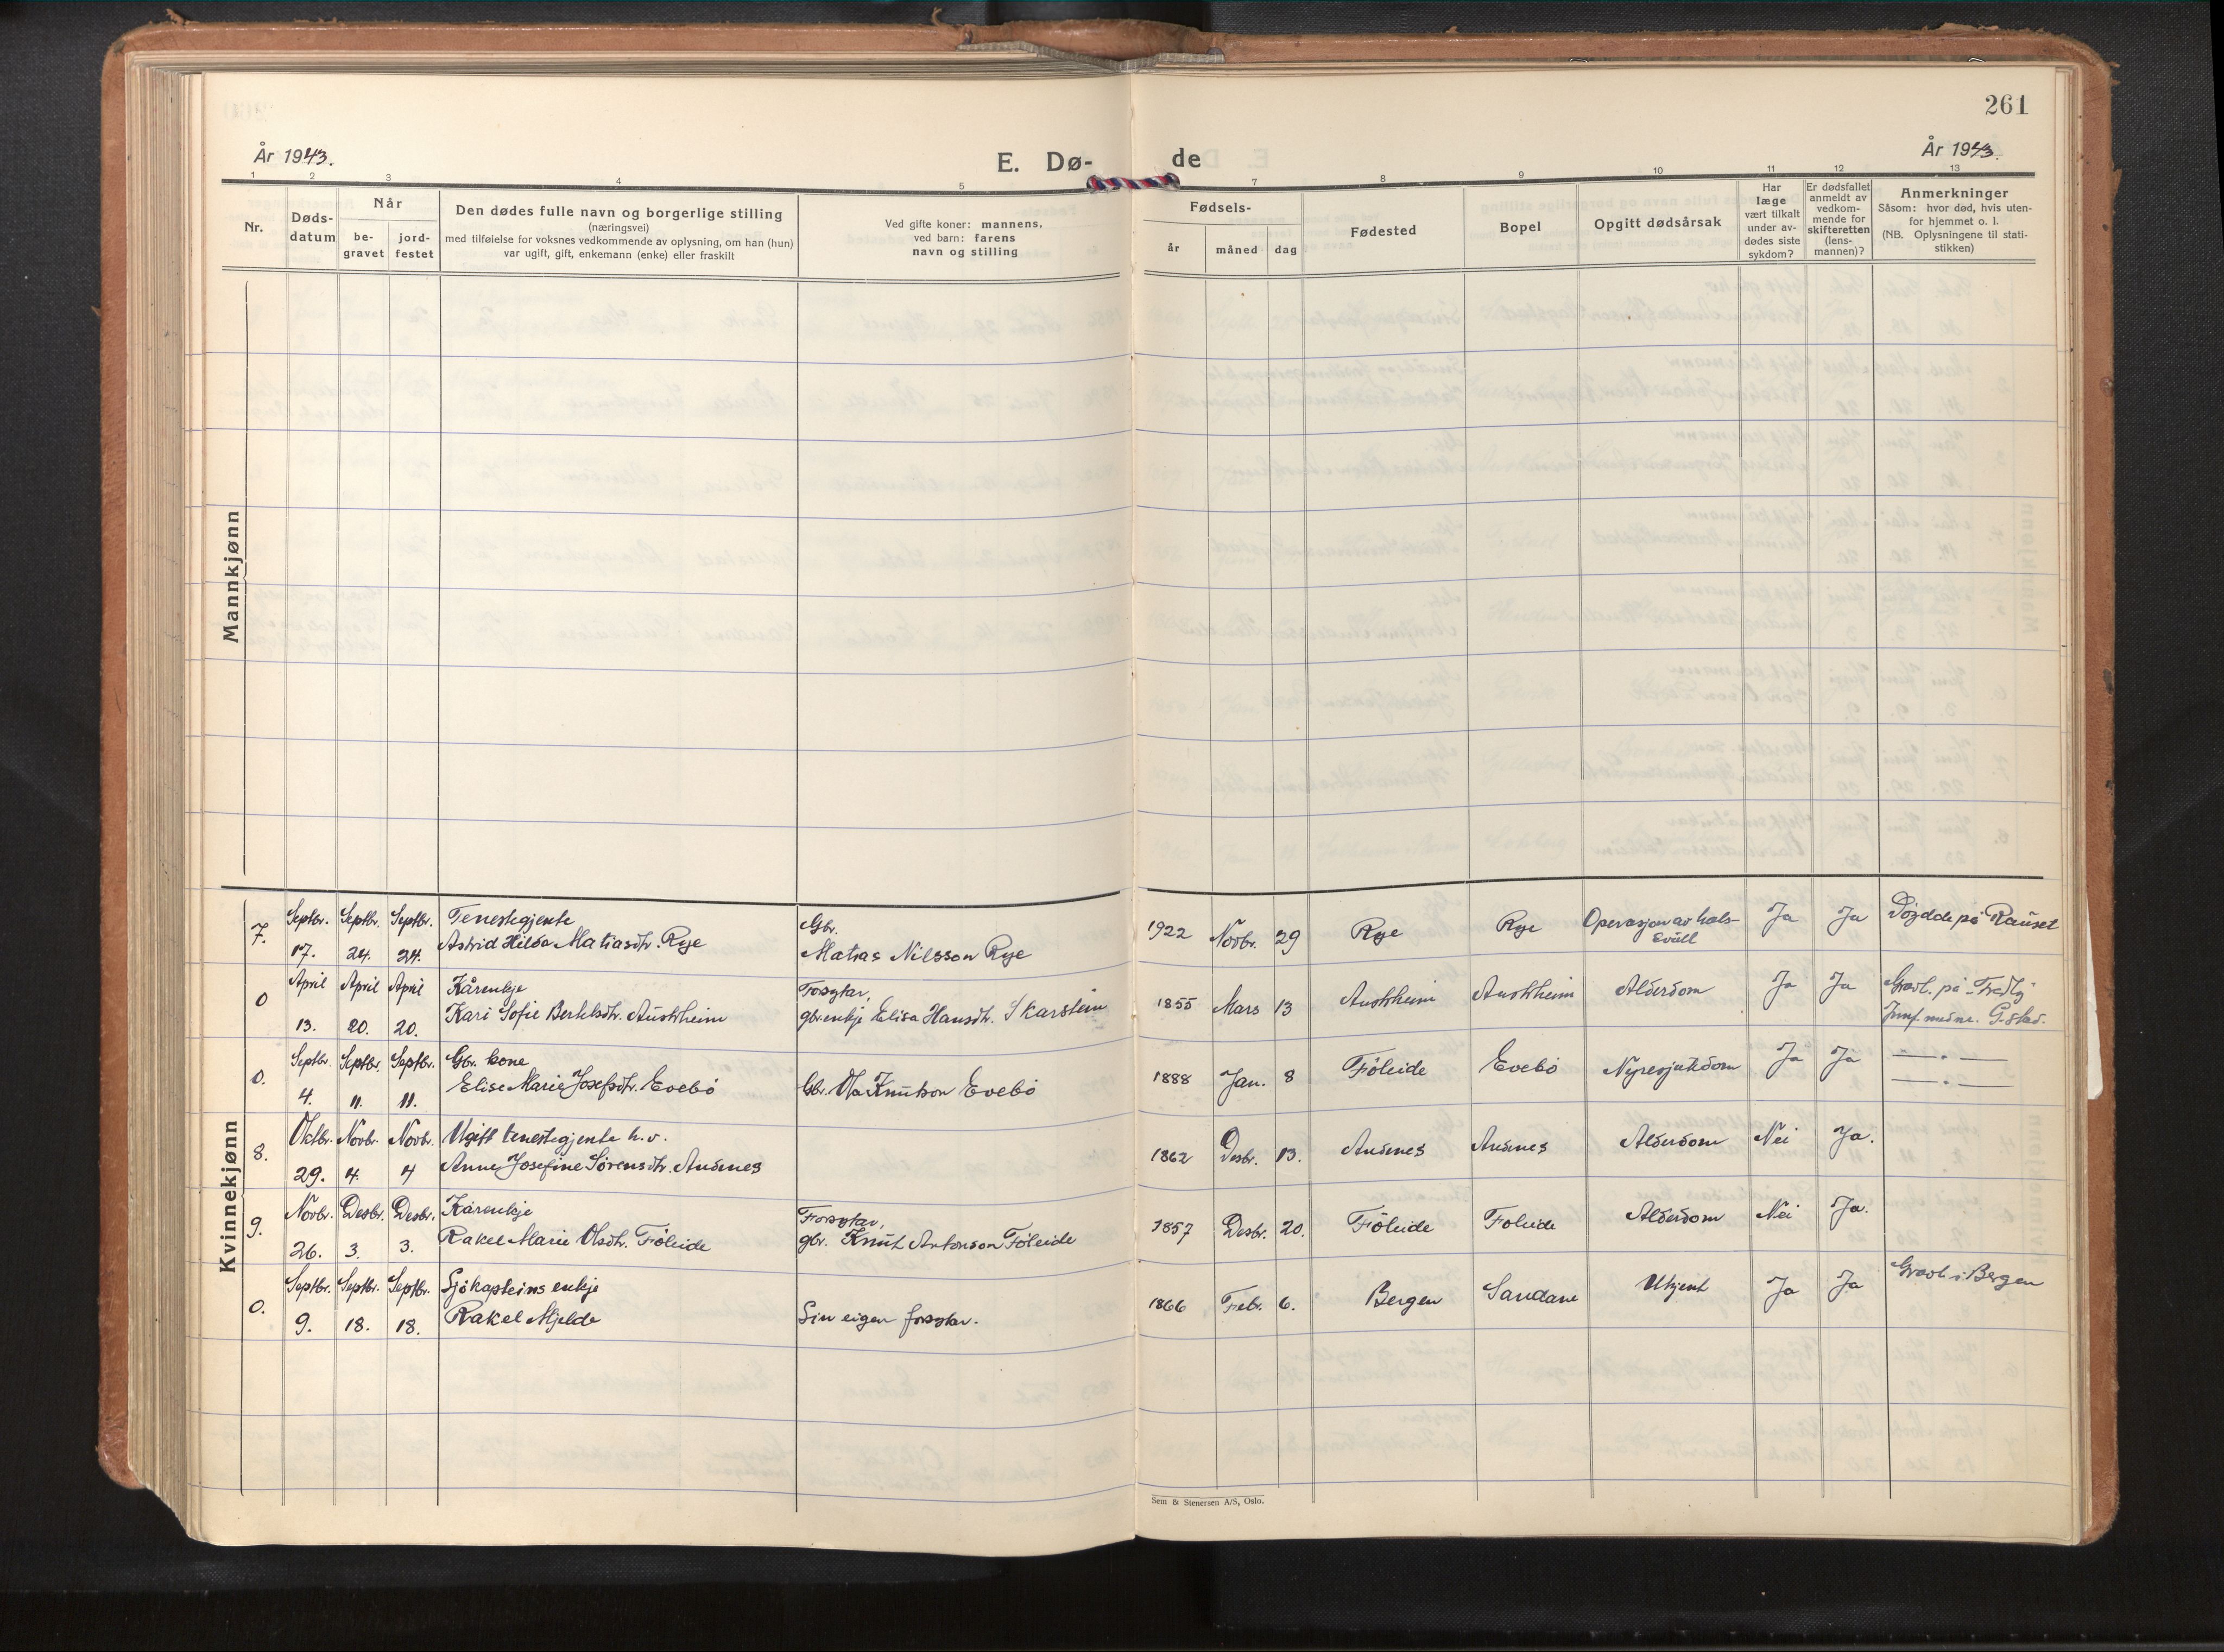 261
År 1943.
E. Dø-
de
År 1943.
1 2 3 4 5 7 8 9 10 11 12 13
Nr.
Døds-
datum
Når
be-
gravet
jord-
festet
Den dødes fulle navn og borgerlige stilling
(næringsvei)
med tilføielse for voksnes vedkommende av oplysning, om han (hun)
var ugift, gift, enkemann (enke) eller fraskilt
Ved gifte koner: mannens,
ved barn: farens
navn og stilling
Fødsels-
år måned dag
Fødested
Bopel
Opgitt dødsårsak
Har
læge
vært tilkalt
under av-
dødes siste
sykdom?
Er dødsfallet
anmeldt av
vedkom-
mende for
skifteretten
(lens-
mannen)?
Anmerkninger
Såsom: hvor død, hvis uten-
for hjemmet o. l.
(NB. Oplysningene til stati-
stikken)
Mannkjønn
Kvinnekjønn
7. Septbr. Septbr. Septbr. Tenestegjente Gbr. 1922 Novbr. 29 Rye Rye Operasjon av hals- Ja Ja Døydde på Rauset
17. 24. 24. Astrid Hilda Matiasdtr. Rye Matias Nilsson Rye svull
0 April April April Kårenkje Forsytar, 1855 Mars 13 Austrheim Austrheim Alderdom Ja Ja Gravl. på "Fredly"
13. 20. 20. Kari Sofie Bertelsdtr. Austrheim gbr.enkje Elisa Hansdtr. Skarstein G.stad.
0. Septbr. Septbr. Septbr. Gbr. kone 1888 Jan. 8 Føleide Evebø Nyresjukdom Ja Ja — " —
4. 11. 11. Elise Marie Josefsdtr. Evebø Gbr. Ola Knutson Evebø — " —
8. Oktbr. Novbr. Novbr. Ugift tenestegjente h.v. 1862 Desbr. 13. Andenes Andenes Alderdom Nei Ja.
29. 4. 4 Anne Josefine Sørensdtr. Andenes
9. Novbr. Desbr. Desbr. Kårenkje Forsytar, 1857 Desbr. 20. Føleide Føleide Alderdom Nei Ja.
26. 3. 3. Rakel Marie Olsdtr. Føleide gbr. Knut Antonson Føleide
0. Septbr. Septbr. Septbr. Sjøkapteins enkje 1866 Febr. 6. Bergen Sandane Ukjent Ja Ja Gravl. i Bergen
9. 18. 18. Rakel Mjelde Sin eigen forsytar.
Sem & Stenersen A/S, Oslo.